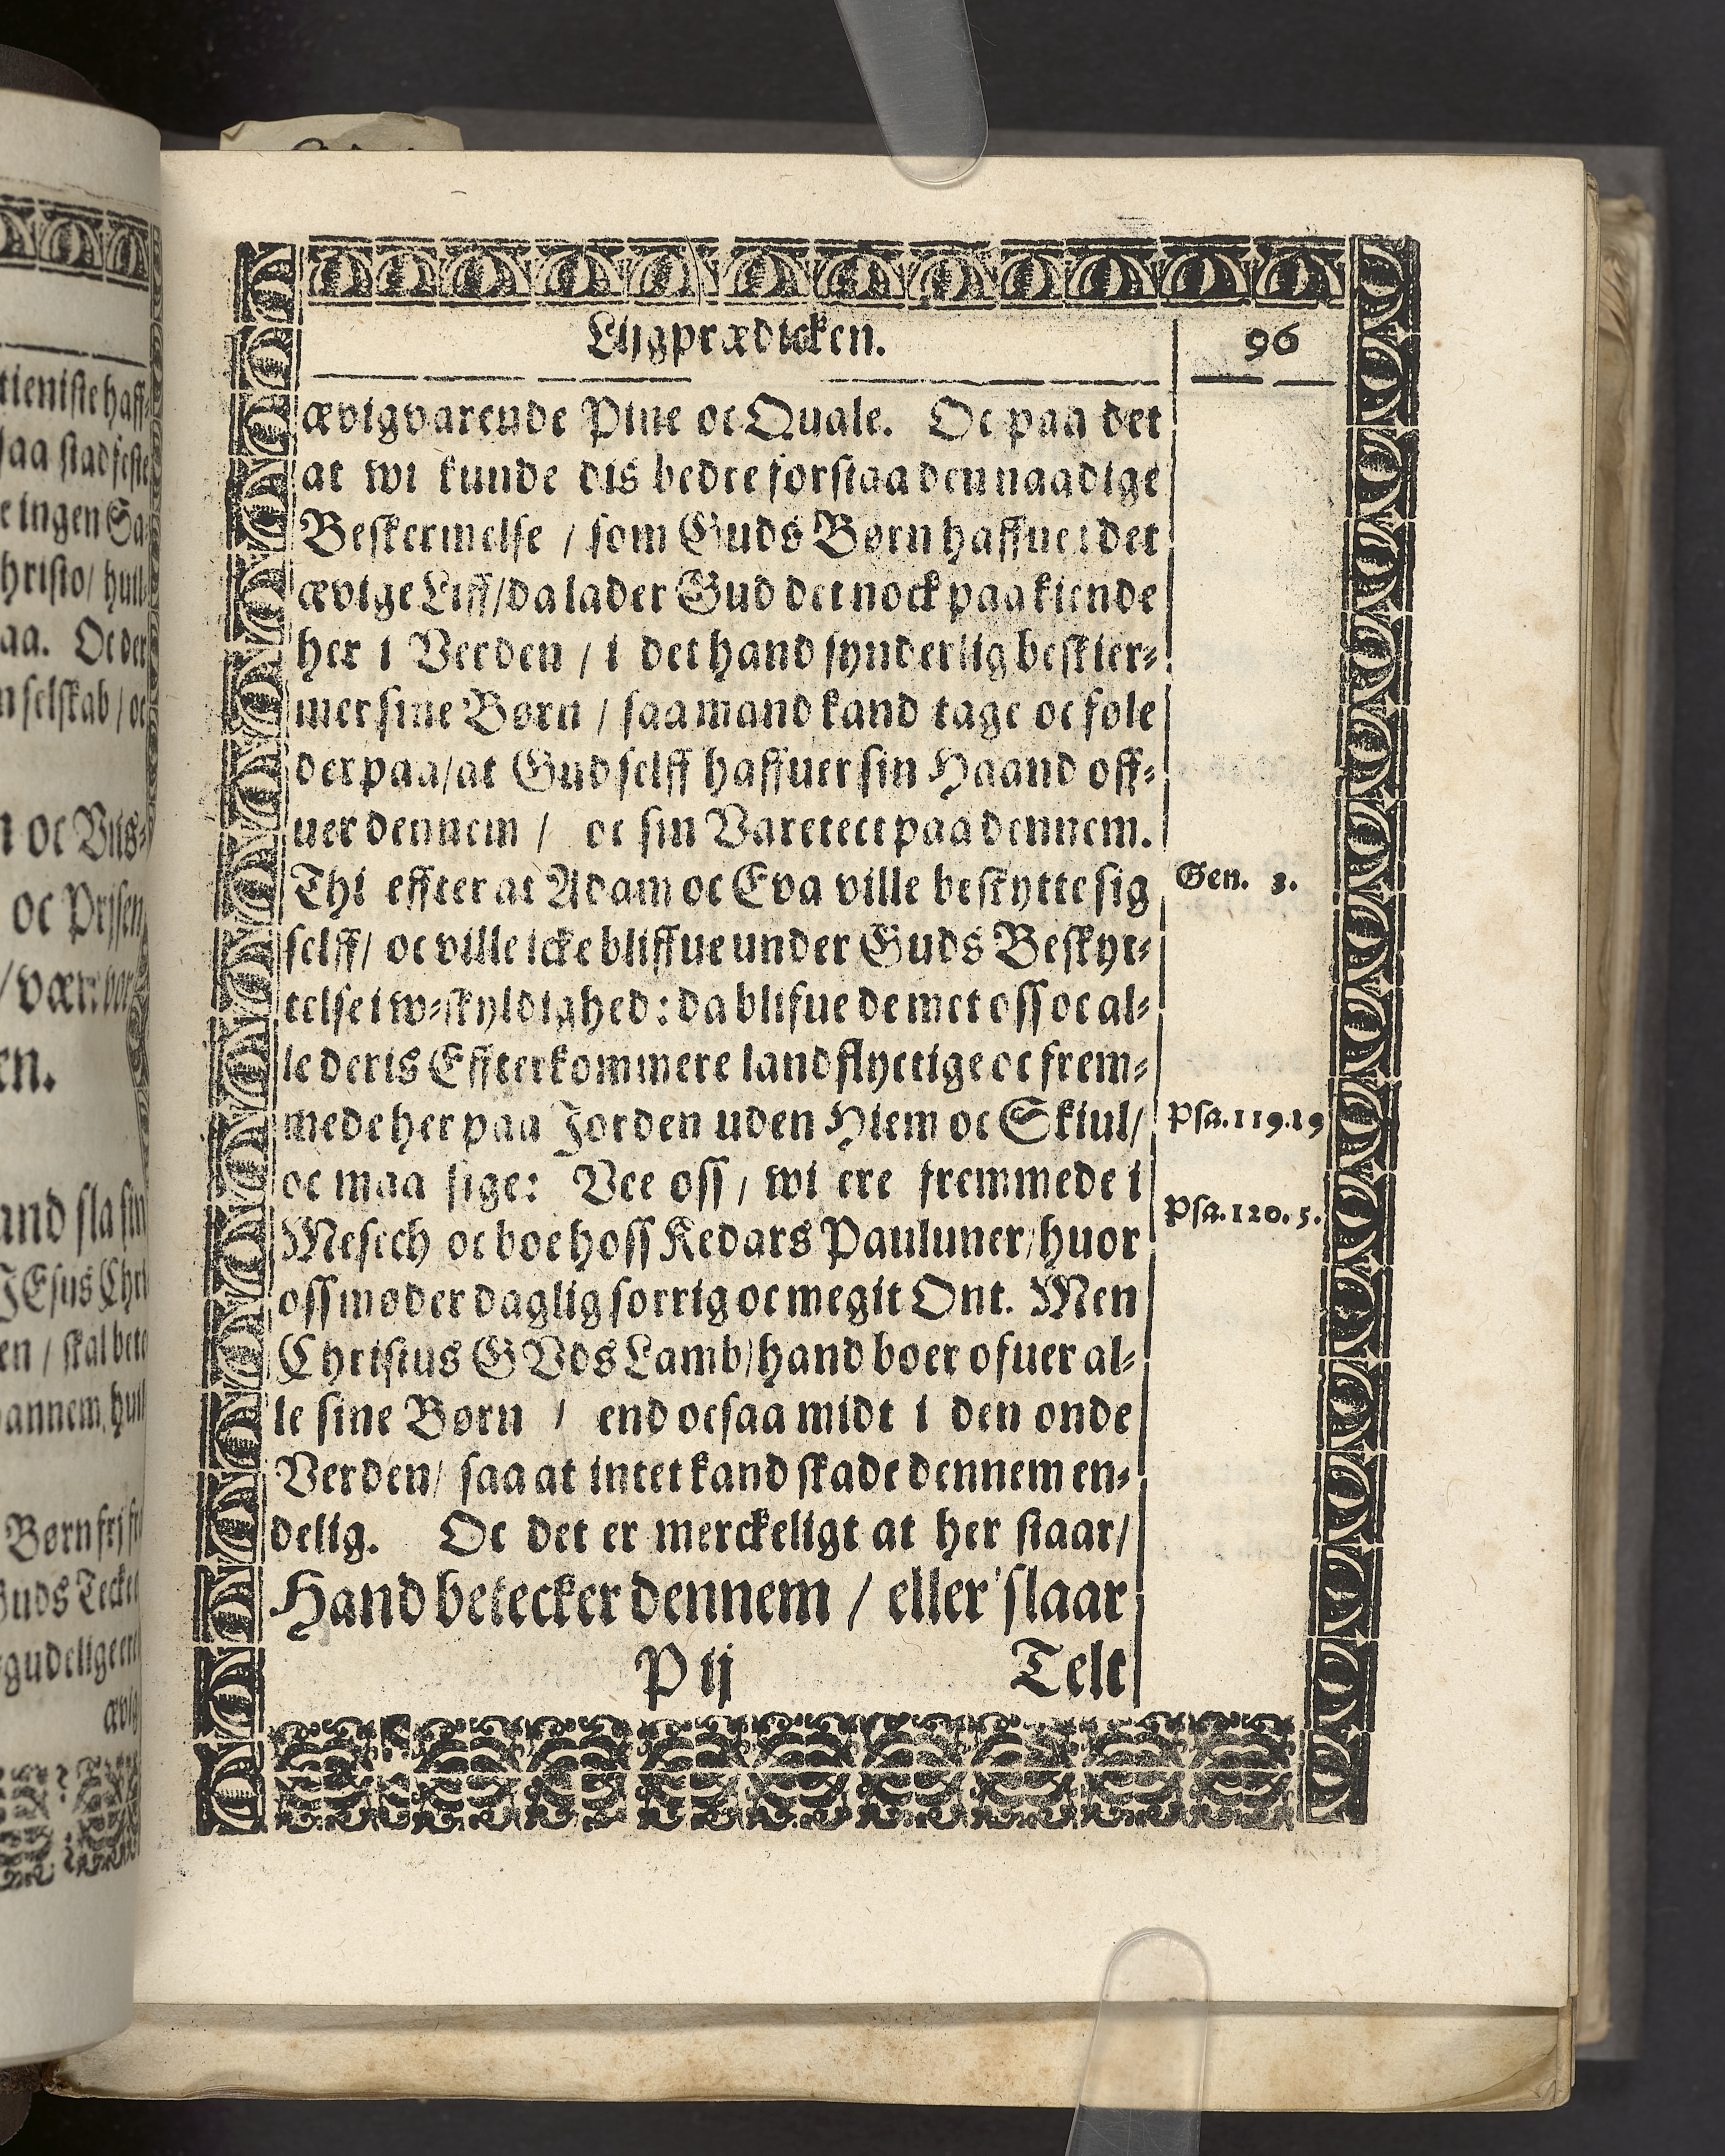 Lijgprædicken.
96
ævigvarende Pine oc Quale. Oc paa det
at wi kunde dis bedre forstaa den naadige
Beskermelse / som Guds Børn haffue i det
ævige Liff / da lader Gud det nock paakiende
her i Verden / i det hand synderlig beskier⸗
mer sine Børn / saa mand kand tage oc føle
der paa / at Gud selff haffuer sin Haand off⸗
uer dennem / oc sin Varetect paa dennem.
Thi effter at Adam oc Eva ville beskytte sig
Gen. 3.
selff / oc ville icke bliffue under Guds Beskyt⸗
telse i w⸗skyldighed : da blifue de met oss oc al⸗
le deris Effterkommere landflyctige oc frem⸗
mede her paa Jorden uden Hiem oc Skiul /
Psa. 119. 19
oc maa sige : Vee oss / wi ere fremmede i
Psa. 120. 5.
Mesech oc boe hoss Kedars Pauluner / huor
oss møder daglig sorrig oc megit Ont. Men
Christus GVds Lamb / hand boer ofuer al⸗
le sine Børn / end ocsaa midt i den onde
Verden / saa at intet kand skade dennem en⸗
delig. Oc det er merckeligt at her staar /
Hand betecker dennem / eller slaar
P ij
Telt